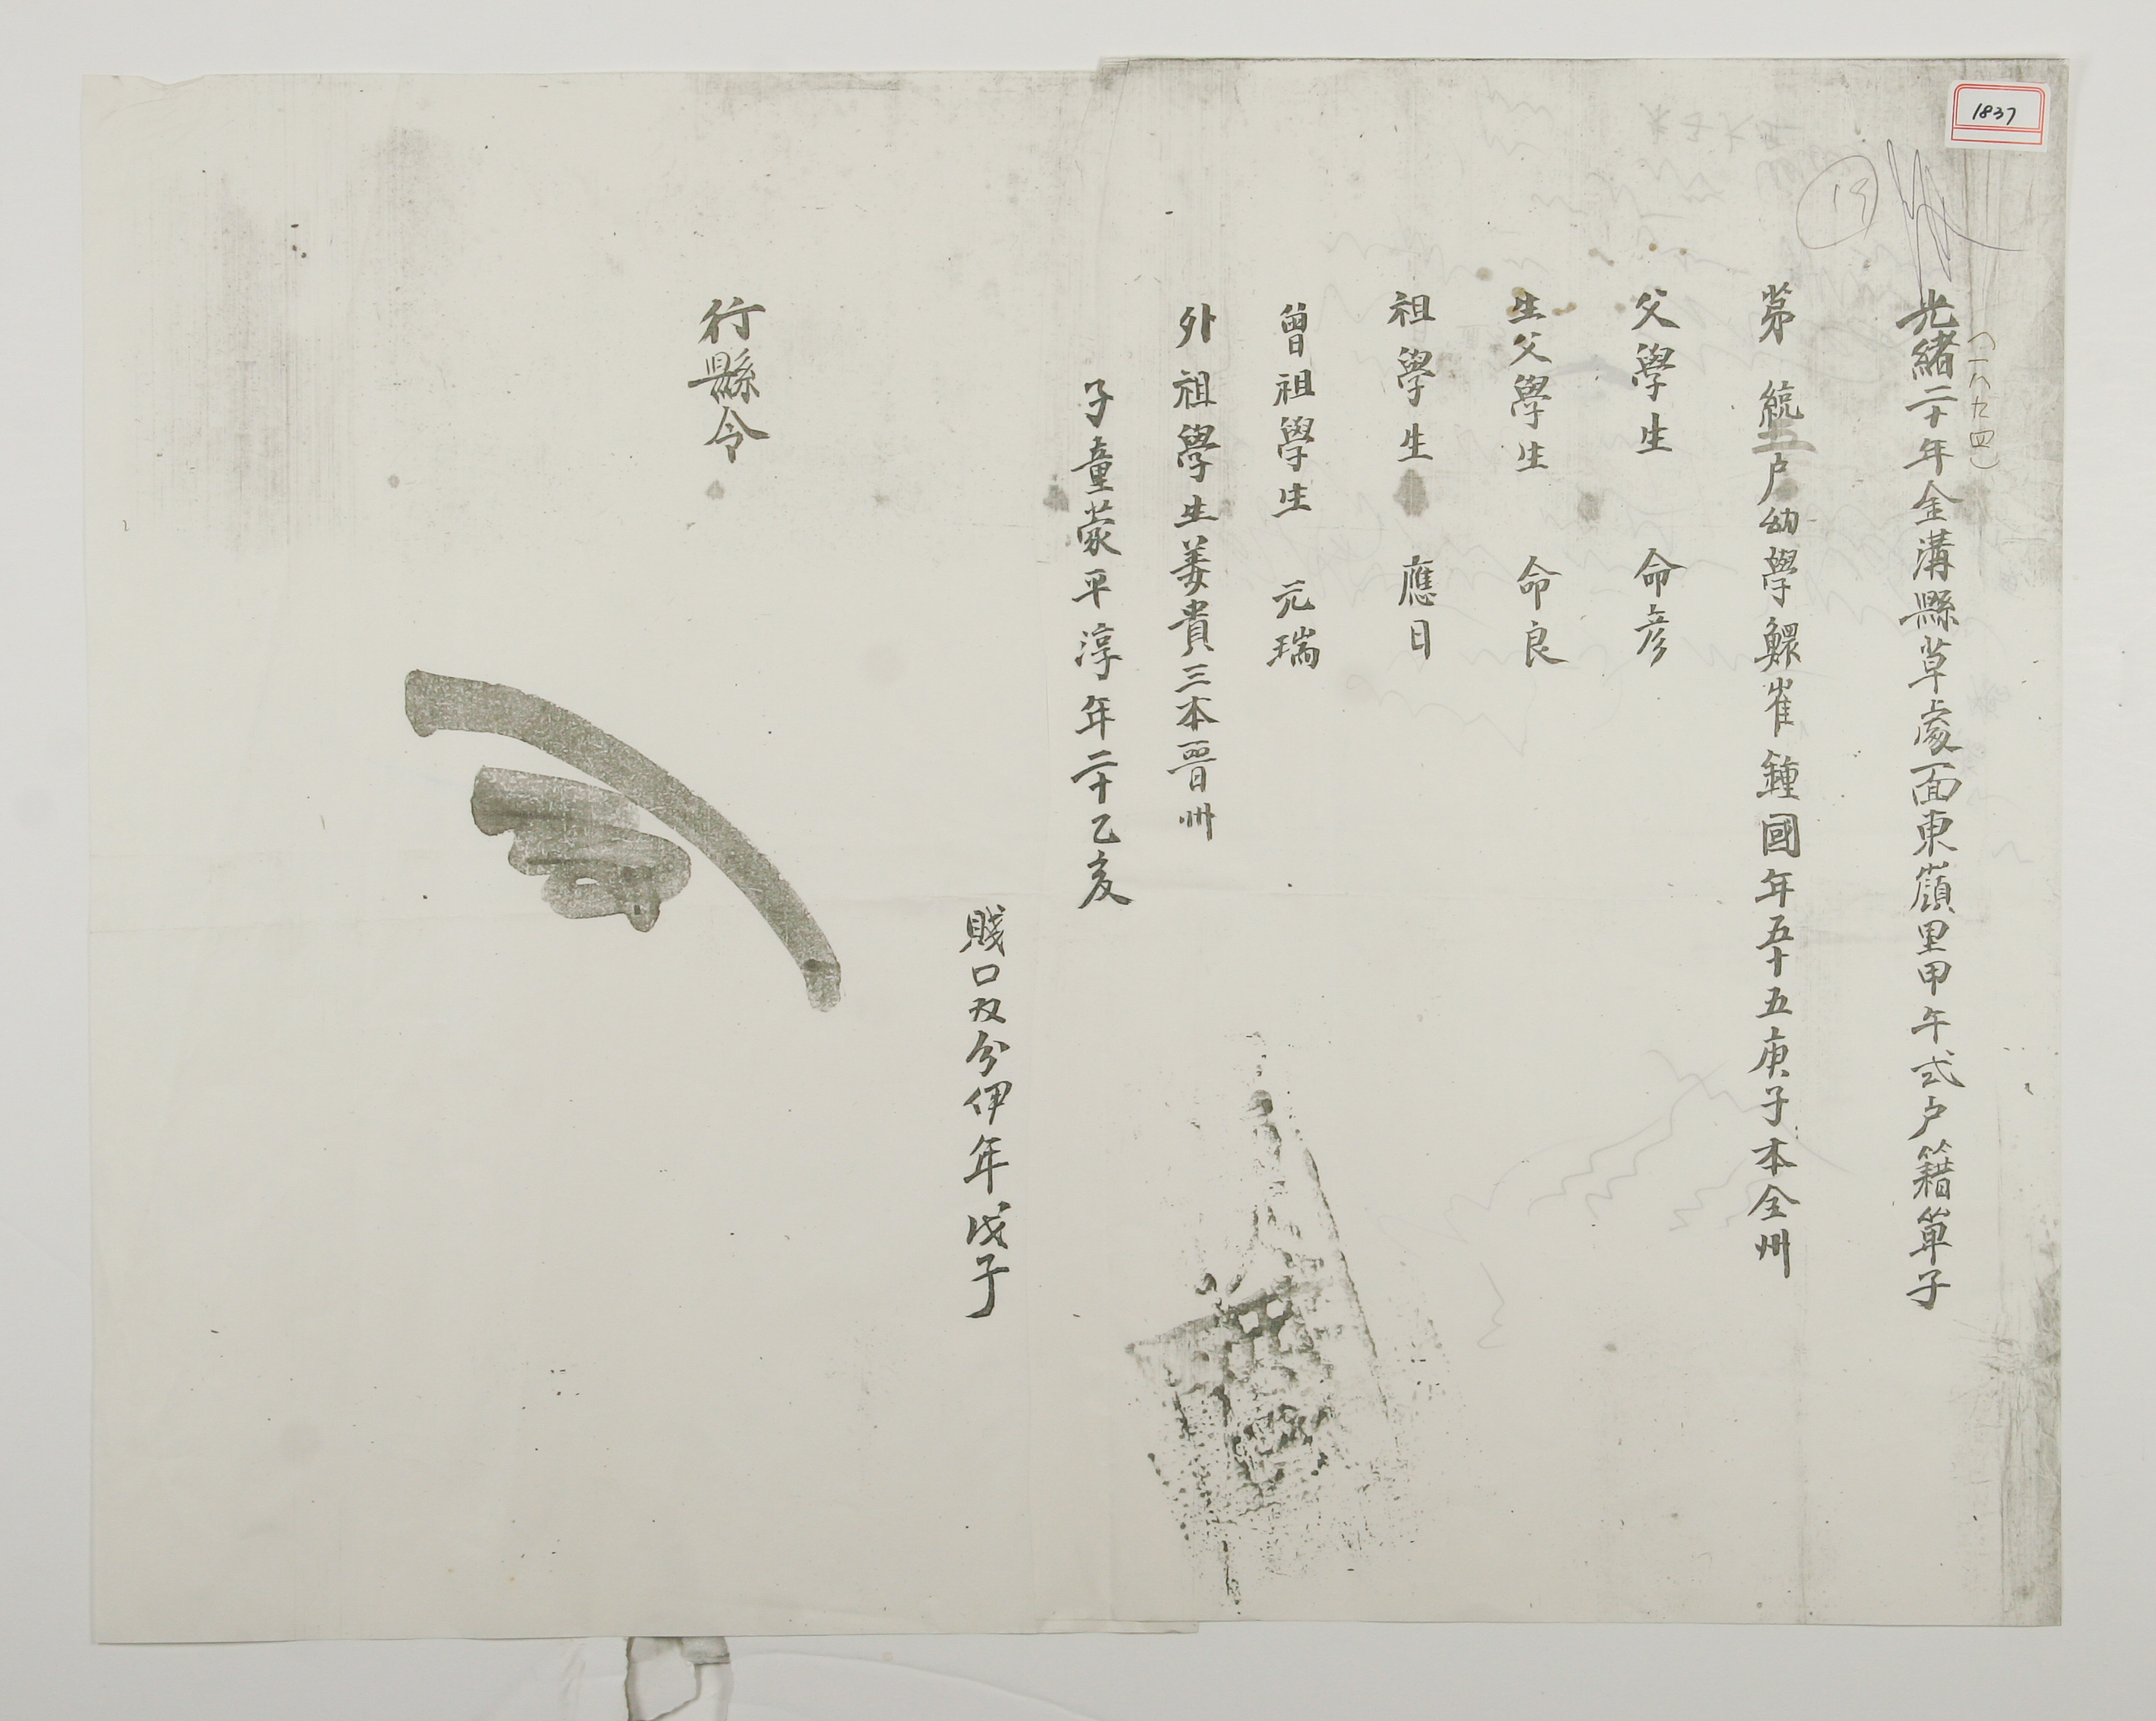 1837
19
(一八九四)
光緖二十年金溝縣草處面東嶺里甲午式戶籍單子
第 統五戶幼學鰥崔鍾國年五十五庚子本全州
父學生 命彦
生父學生 命良
祖學生 應日
曾祖學生 元瑞
外祖學生姜貴三本晉州
子童蒙平淳年二十乙亥
賤口双分伊年戊子
行縣令